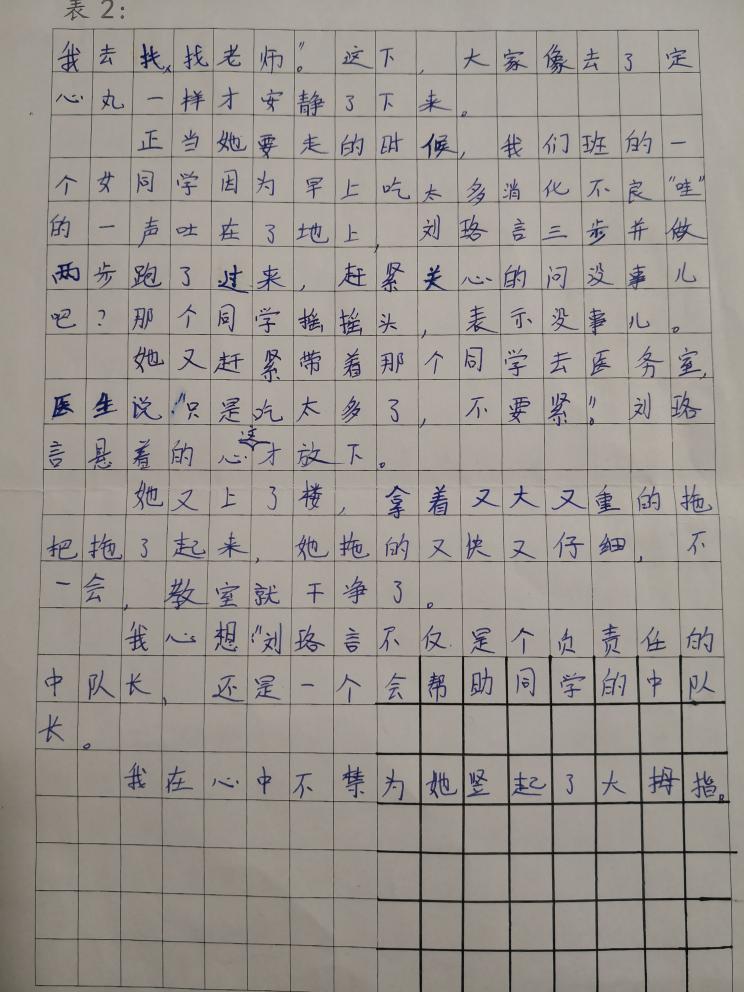 表 2：
我去找找老师”。这下，大家像去了定
心丸一样才安静了下来。
正当她要走的时候，我们班的一
个女同学因为早上吃太多消化不良“哇”
的一声吐在了地上，刘珞言三步并做
两步跑了过来，赶紧关心的问没事儿
吧？那个同学摇摇头，表示没事儿。
她又赶紧带着那个同学去医务室，
医生说：“只是吃太多了，不要紧”。刘珞
言悬着的心这才放下。
她又上了楼，拿着又大又重的拖
把拖了起来，她拖的又快又仔细，不
一会，教室就干净了。
我心想：“刘珞言不仅是个负责任的
中队长，还是一个会帮助同学的中队
长。
我在心中不禁为她竖起了大拇指。